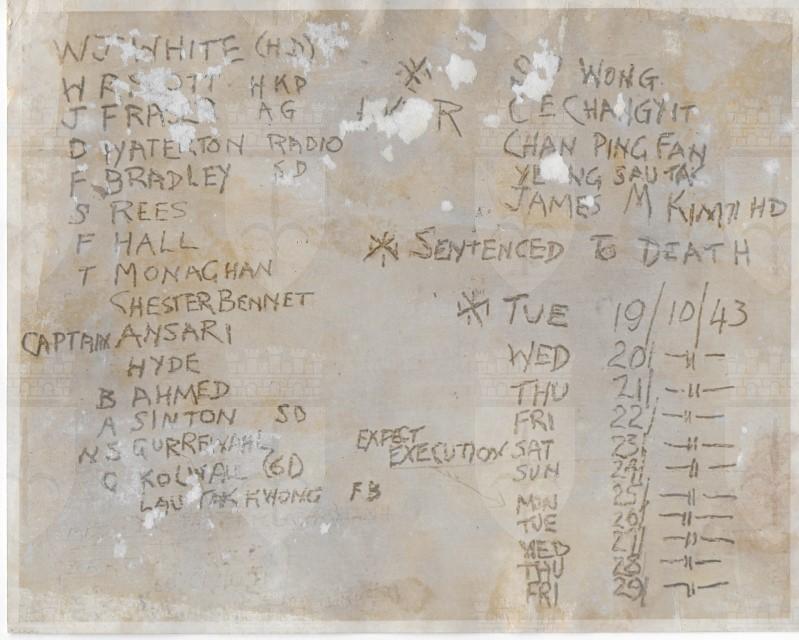 W J WHITE (HD)
W R SCOTT HKD
J FRASER AG
D WATERTON RADIO
F BRADLEY SD
S REES
F HALL
T MONAGHAN
CHESTER BENNET
CAPTAIN ANSARI
HYDE
B AHMED
A SINTON SD
N S
C (GD)
LAU TAK KWONG FB
R
WONG
CHAN PING FAN
YEUNG SAU TAK
JAMES M KIM HD
SENTENCED TO DEATH
TUE 19/10/43
WED 20/ -"-
THU 21/ -"-
FRI 22/ -"-
EXPECT
EXECUTION SAT 23/ -"-
SUN 24/ -"-
MON 25/ -"-
TUE 26/ -"-
WED 27/ -"-
THU 28 -"-
FRI 29/ -"-